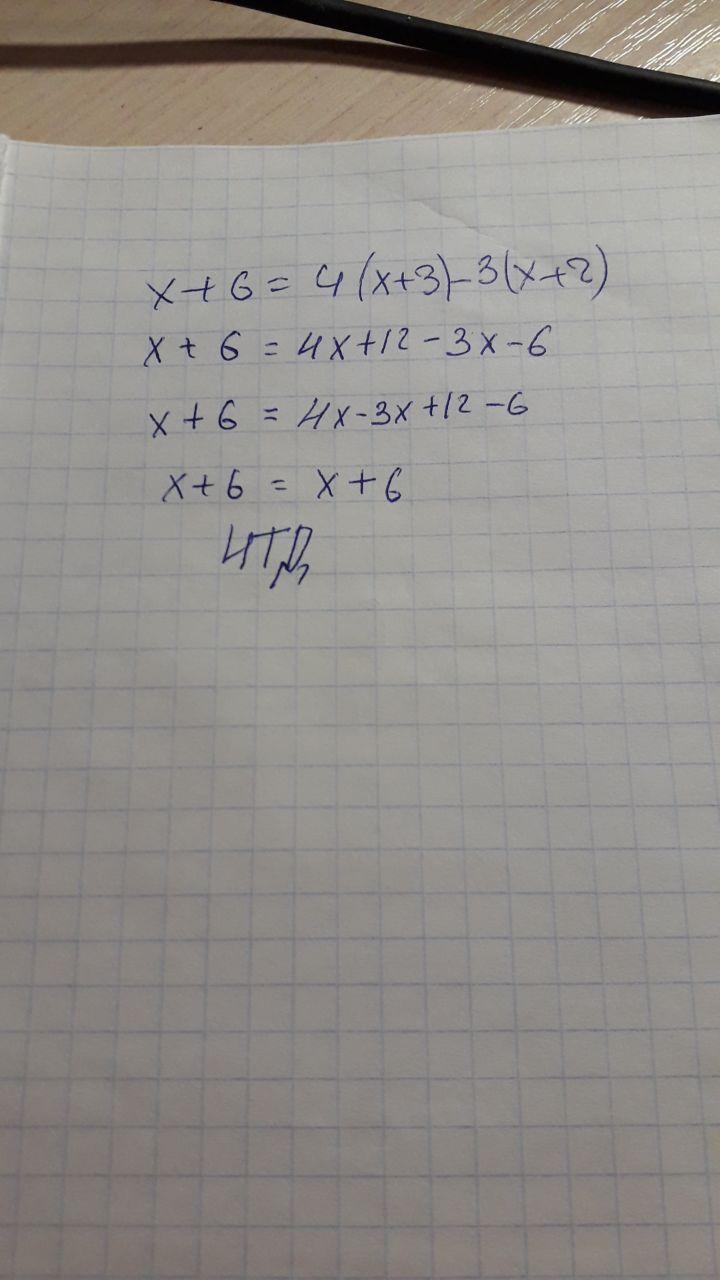 x+6 = 4(x+3)-3(x+2)
x + 6 = 4x+12-3x-6
x+6 = 4x-3x+12-6
x+6 = x+6
ЧТД